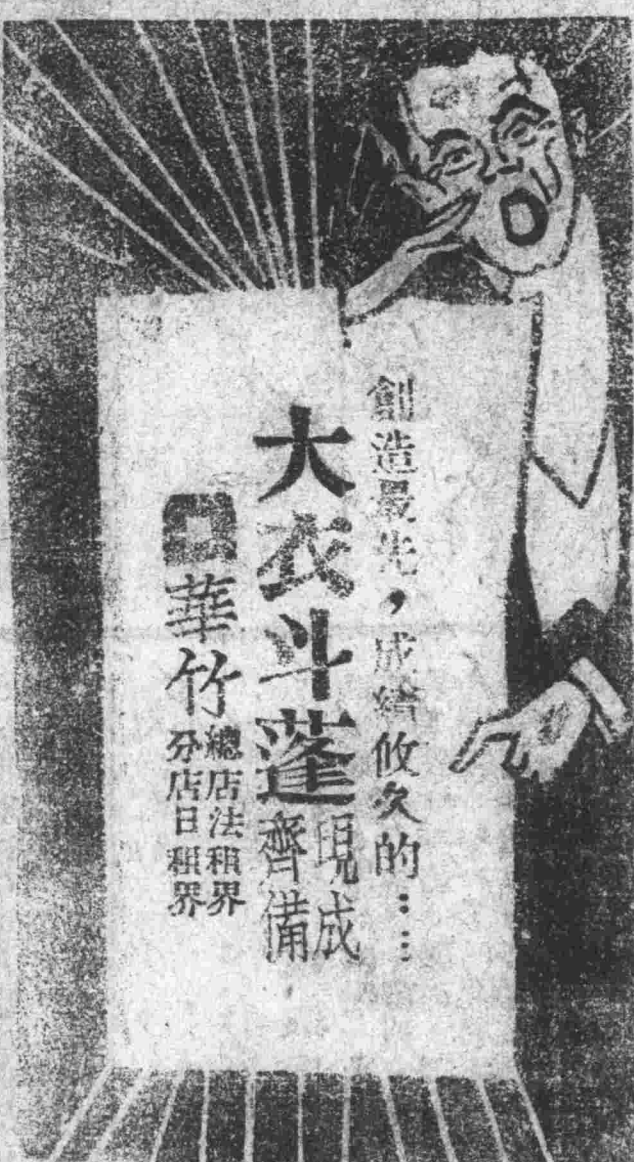 創造最先，成績攸久的……
大衣斗蓬現成齊備
華竹
總店法租界
分店日租界